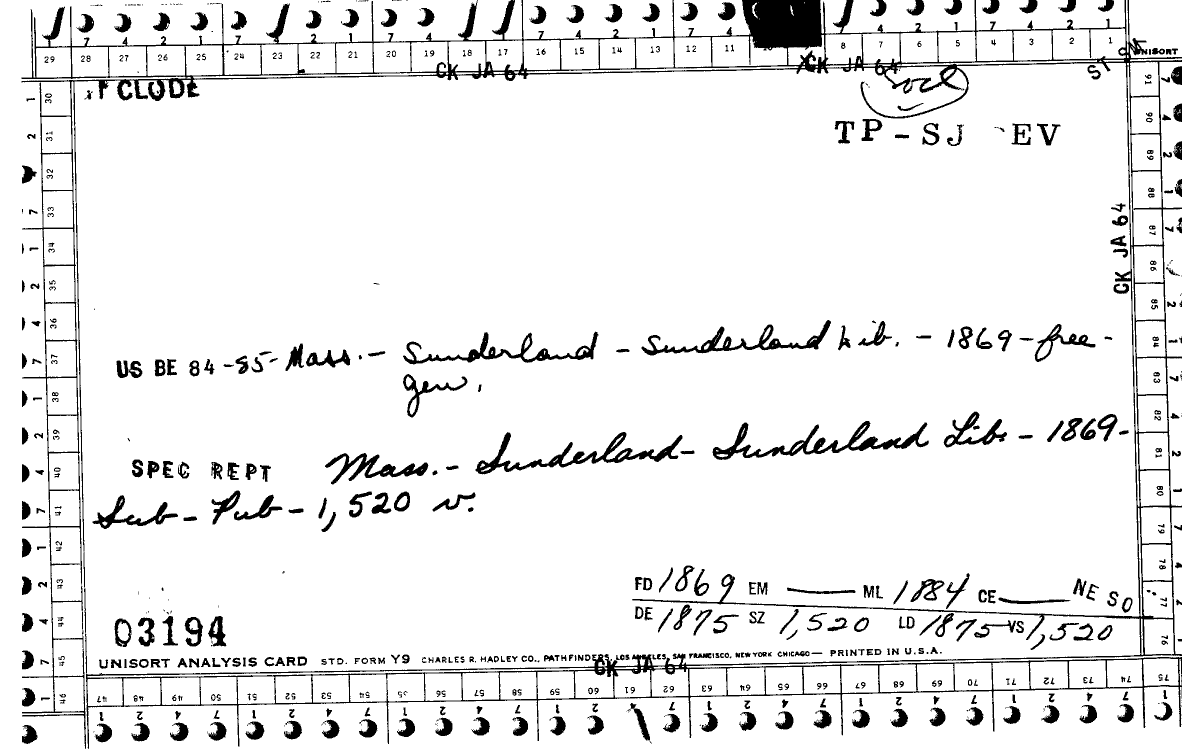 29 28 27 26 25 24 23 22 21 20 19 18 17 16 15 14 13 12 11 8 7 6 5 4 3 2 1 UNISORT
CK JA 64 CK JA 64 ST
CLODE
Socl
TP-SJ EV
CK JA 64
US BE 84-85- Mass. - Sunderland - Sunderland Lib. - 1869 - free -
gen.
SPEC REPT Mass. - Sunderland - Sunderland Lib. - 1869 -
Sub - Pub - 1,520 v.
FD 1869 EM —— ML 1884 CE —— NE SO
DE 1875 SZ 1,520 LD 1875 VS 1,520
03194
UNISORT ANALYSIS CARD STD. FORM Y9 CHARLES R. HADLEY CO., PATHFINDERS, LOS ANGELES, SAN FRANCISCO, NEW YORK CHICAGO — PRINTED IN U.S.A.
CK JA 64
47 48 49 50 51 52 53 54 55 56 57 58 59 60 61 62 63 64 65 66 67 68 69 70 71 72 73 74 75